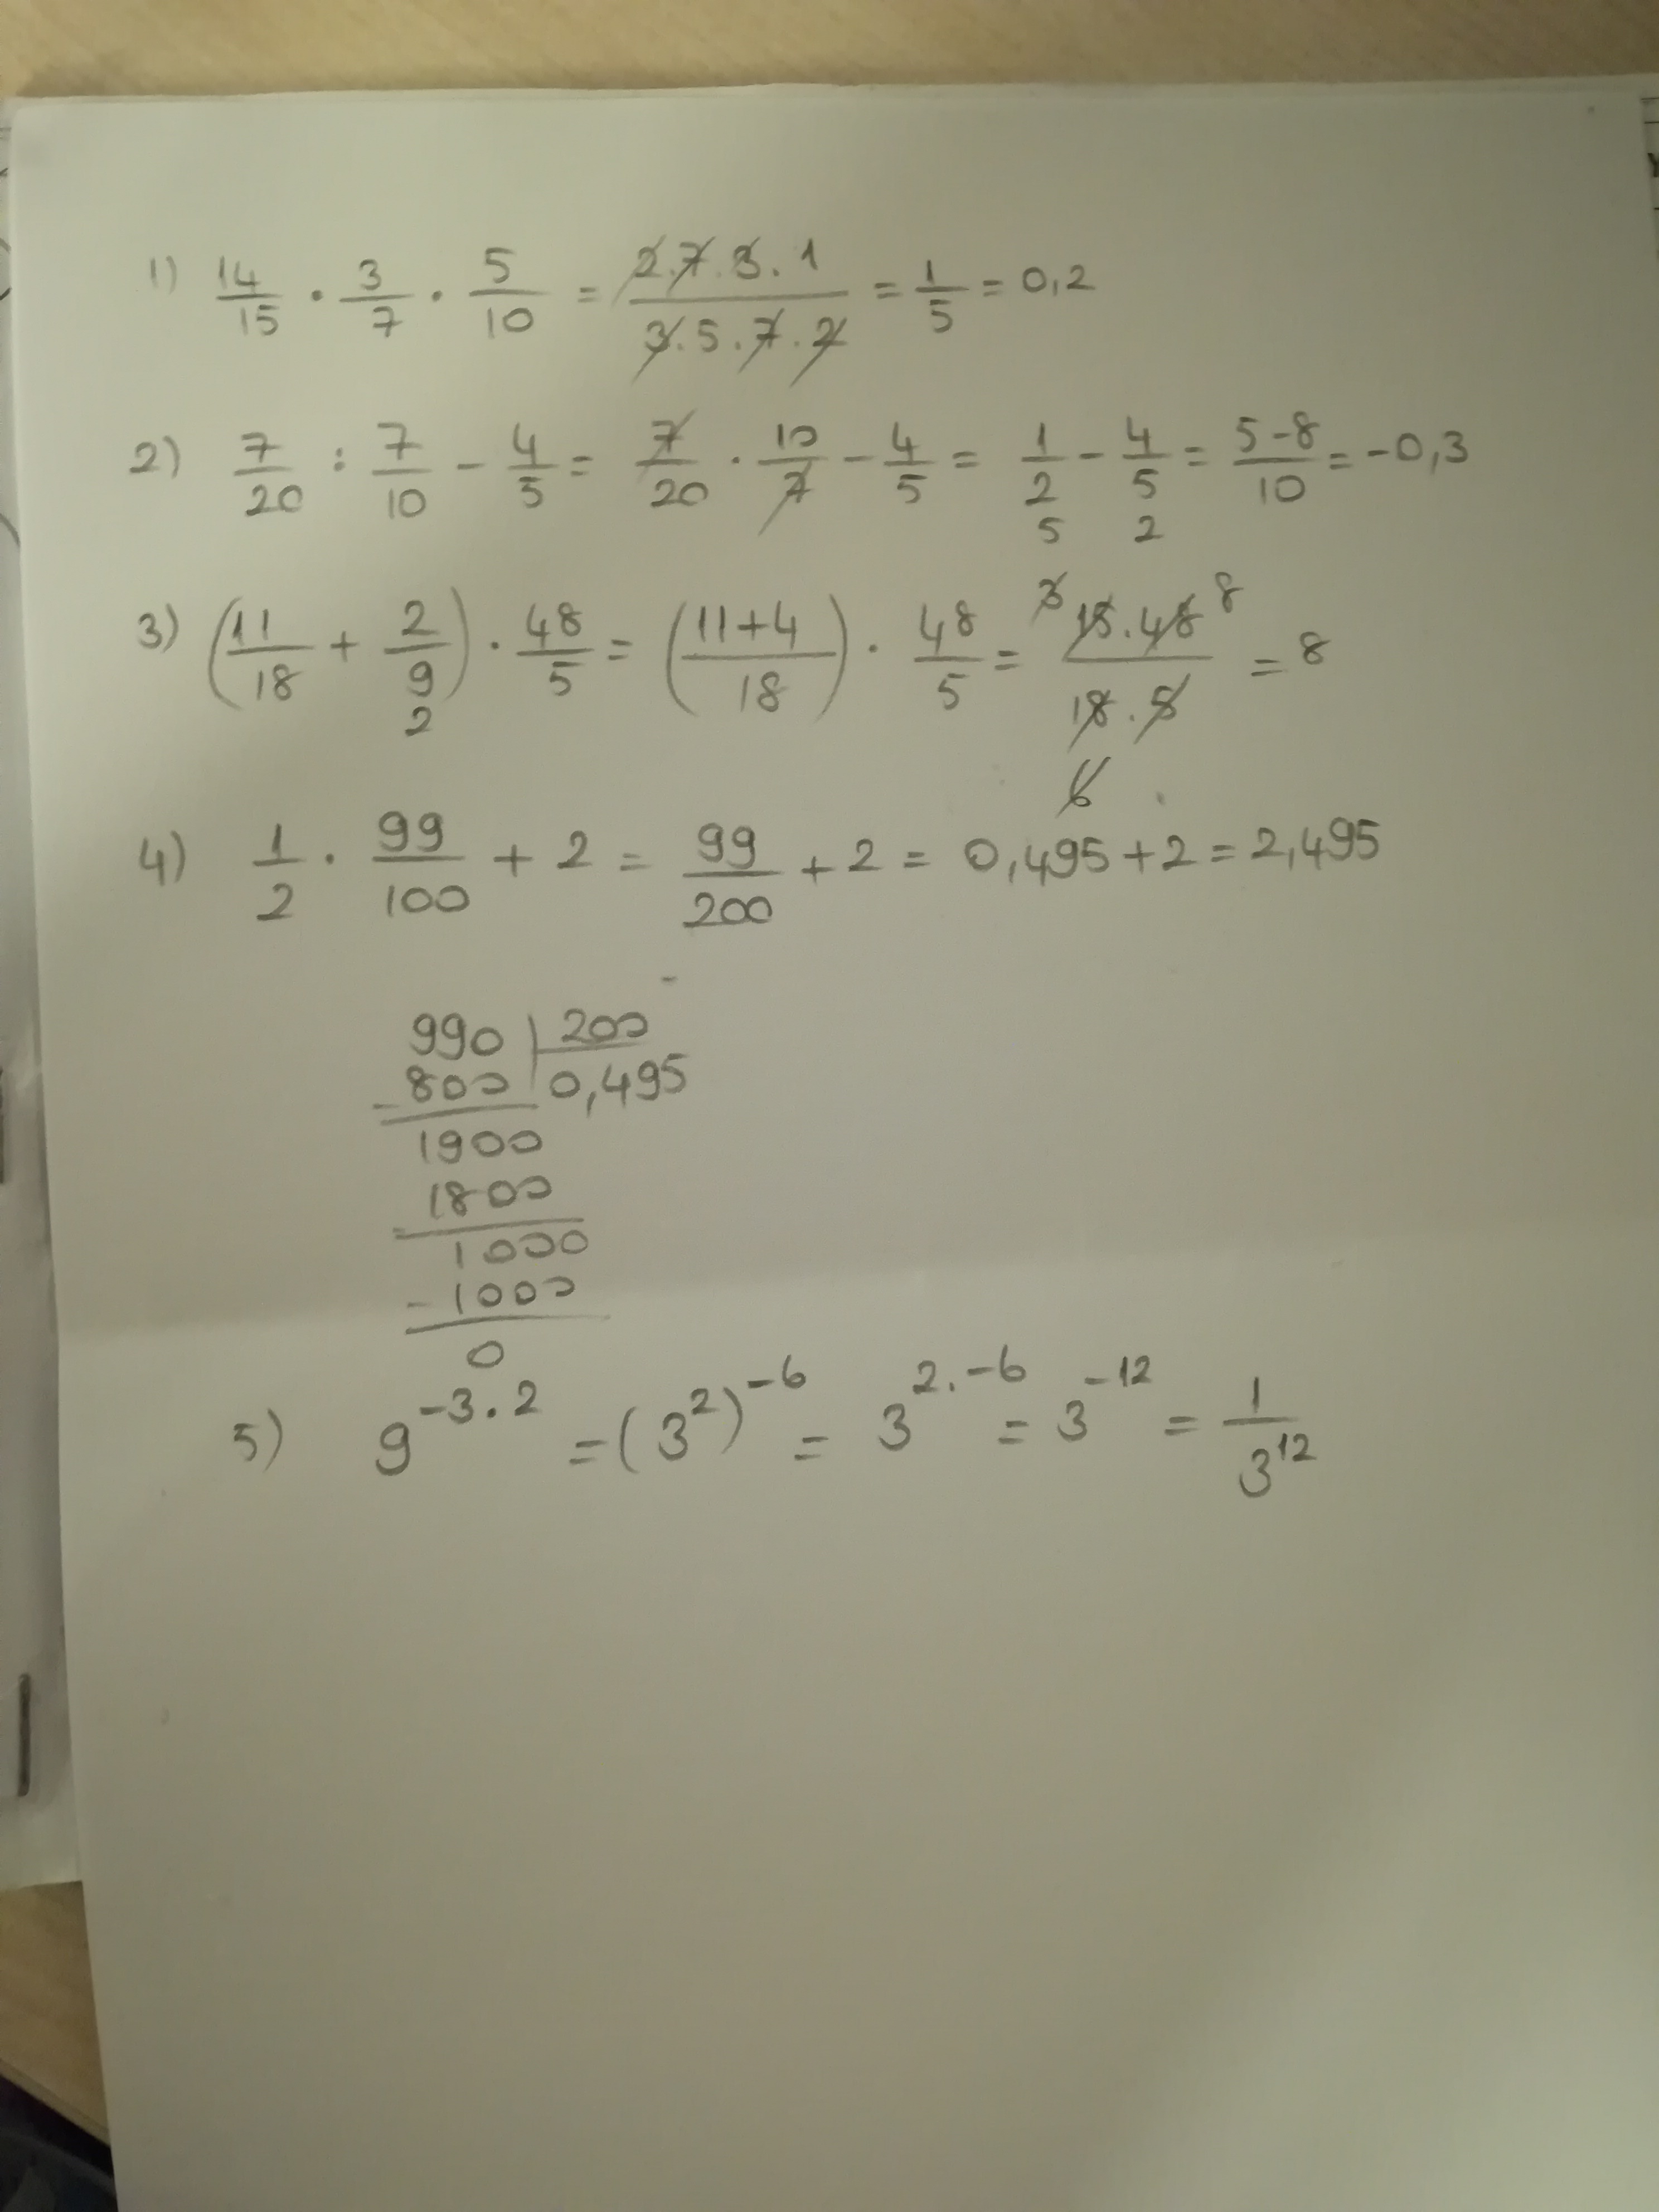 1) 14/15 · 3/7 · 5/10 = 2·7·3·1 / 3·5·7·2 = 1/5 = 0,2
2) 7/20 : 7/10 - 4/5 = 7/20 · 10/7 - 4/5 = 1/2 - 4/5 = 5-8/10 = -0,3
5 2
3) (11/18 + 2/9) · 48/5 = (11+4/18) · 48/5 = 3 15·48 8 / 18·5 = 8
2 6
4) 1/2 · 99/100 + 2 = 99/200 + 2 = 0,495 + 2 = 2,495
990 | 200
- 800 | 0,495
1900
- 1800
1000
- 1000
0
5) 9^-3·2 = (3^2)^-6 = 3^2·-6 = 3^-12 = 1/3^12